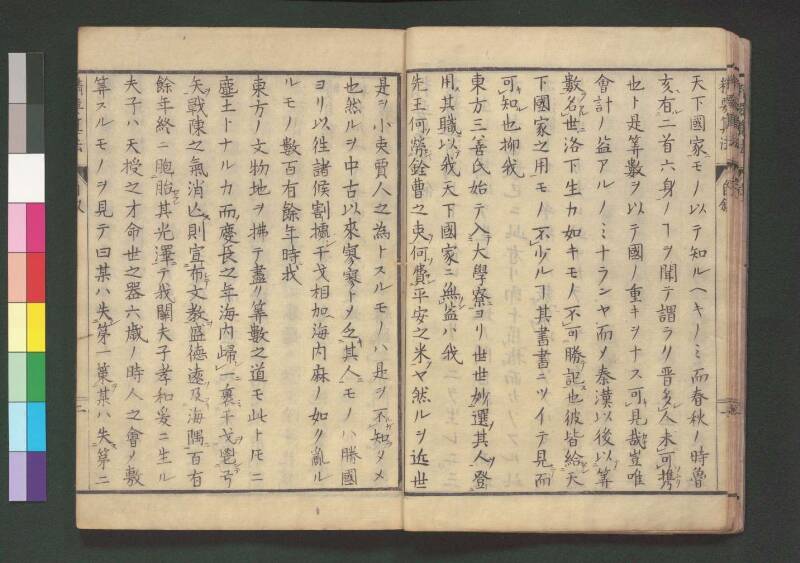 天下國家モノ以テ知ルヘキノミ而春秋ノ時魯
亥有二首六身ノヿヲ聞テ謂ラク晋多人未可携
也ト是筭數ヲ以テ國ノ重キヲナス可見哉豈唯
會計ノ益アルノミナランヤ而〆秦漢以後以筭
數名世洛下生カ如キモノ不可勝記也彼皆給天
下國家之用モノ不少ルヿ其書書ニツイテ見而
可知也抑我
東方三善氏始テ入大學寮ヨリ世世妙選其人登
用其職以我天下國家ニ無益ハ我
先王何榮銓曹之吏何費平安之米ヤ然ルヲ近世
是ヲ小吏賈人之為トスルモノハ是ヲ不知タメ
也然ルヲ中古以來寥寥トメ乏其人モノハ勝國
ヨリ以往諸侯割據干戈相加海内麻ノ如ク亂ル
ルモノ数百有餘年時我
東方ノ文物地ヲ拂テ盡ク筭数之道モ此トモニ
塵土トナルカ而慶長之年海内歸一褁干戈鬯弓
矢戰陳之氣消亾則宣布文教盛德遠及海隅百有
餘年終ニ胞胎其光澤テ我關夫子孝和爰ニ生ル
夫子ハ天授之才命世之器六歳ノ時人之會ノ数
筭スルモノヲ見テ曰某ハ失第一策其ハ失第二